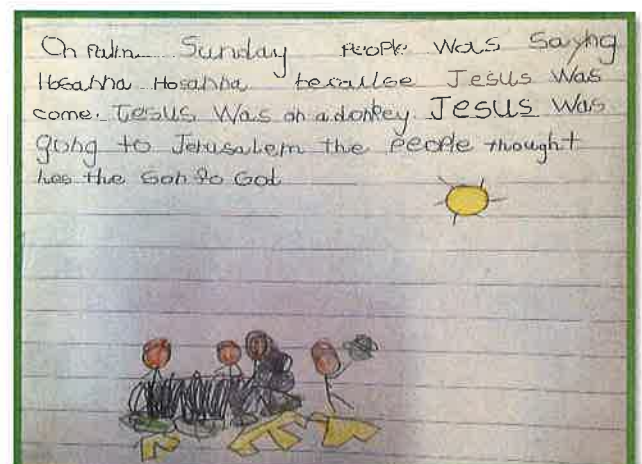 On Palm Sunday People Was Sayng
Hosanna Hosanna becaulse Jesus Was
come. Jesus Was on a donkey. Jesus Was
going to Jerusalem the People thought
hes the Son fo God